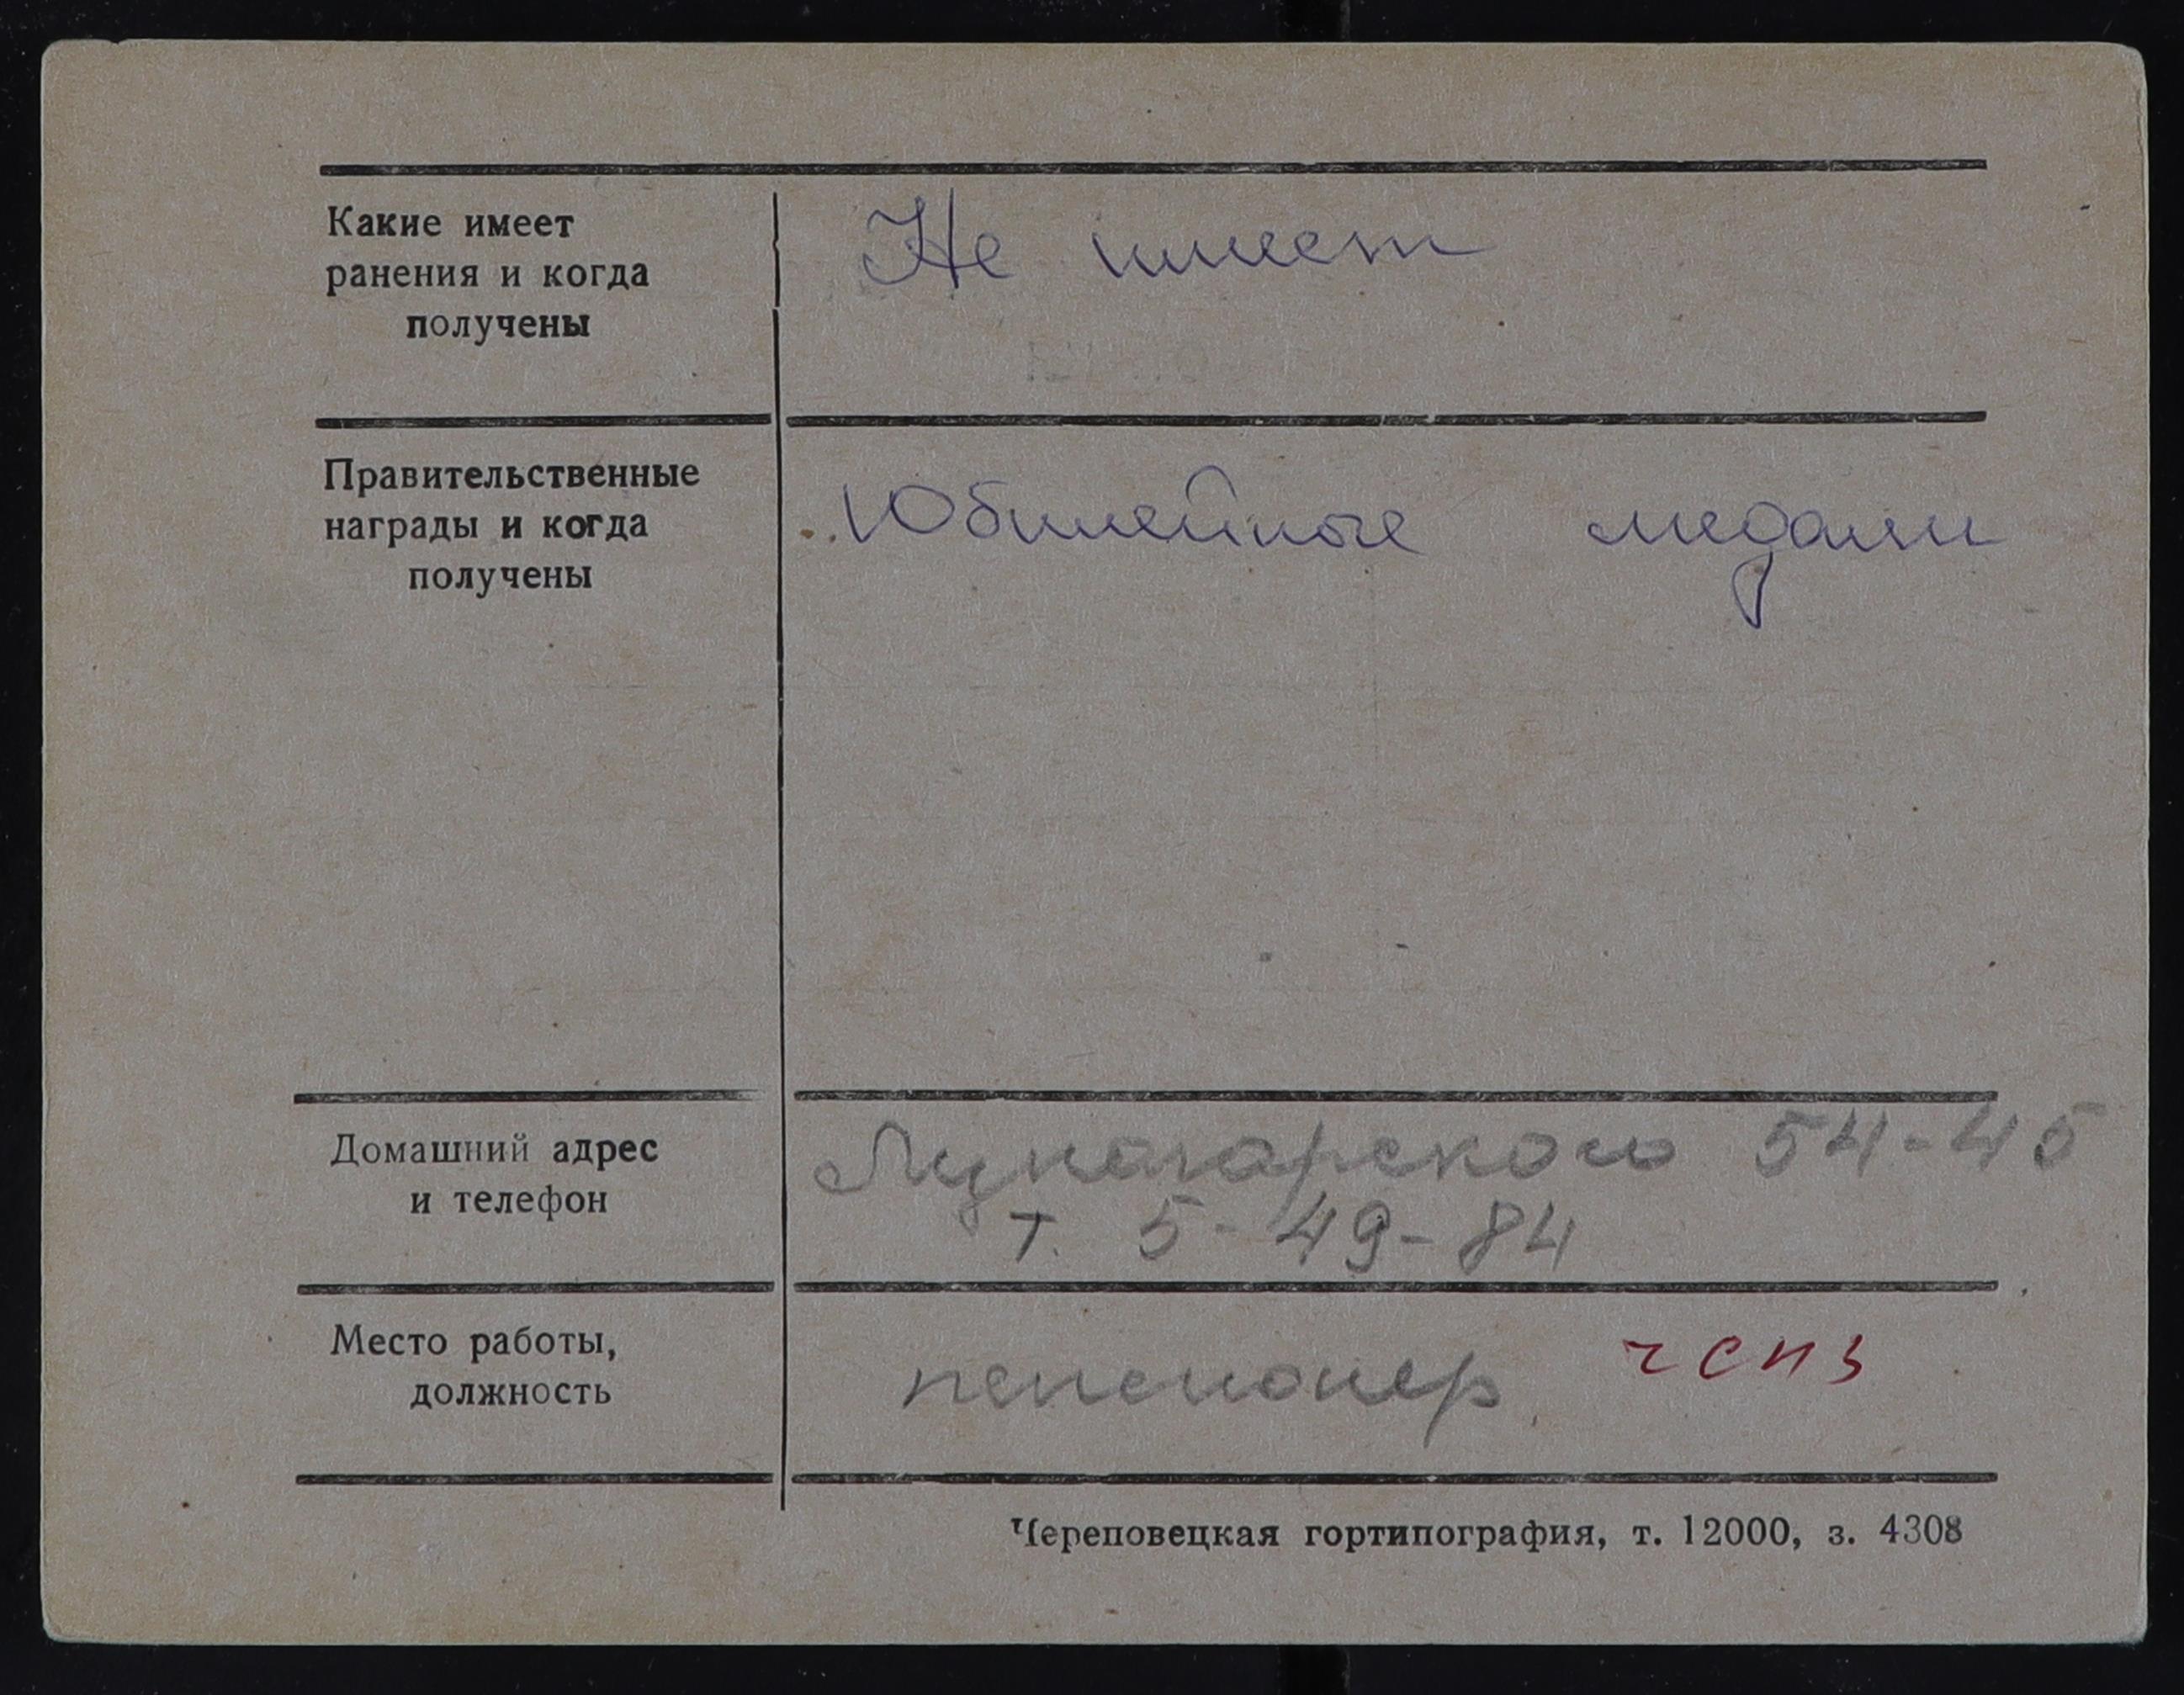 Какие имеет
ранения и когда
получены
Не имеет
Правительственные
награды и когда
получены
Юбилейные медали
Домашний адрес
и телефон
Луначарского 54-45
т. 5-49-84
Место работы,
должность
пенсионер чспз
Череповецкая гортипография, т. 12000, з. 4308